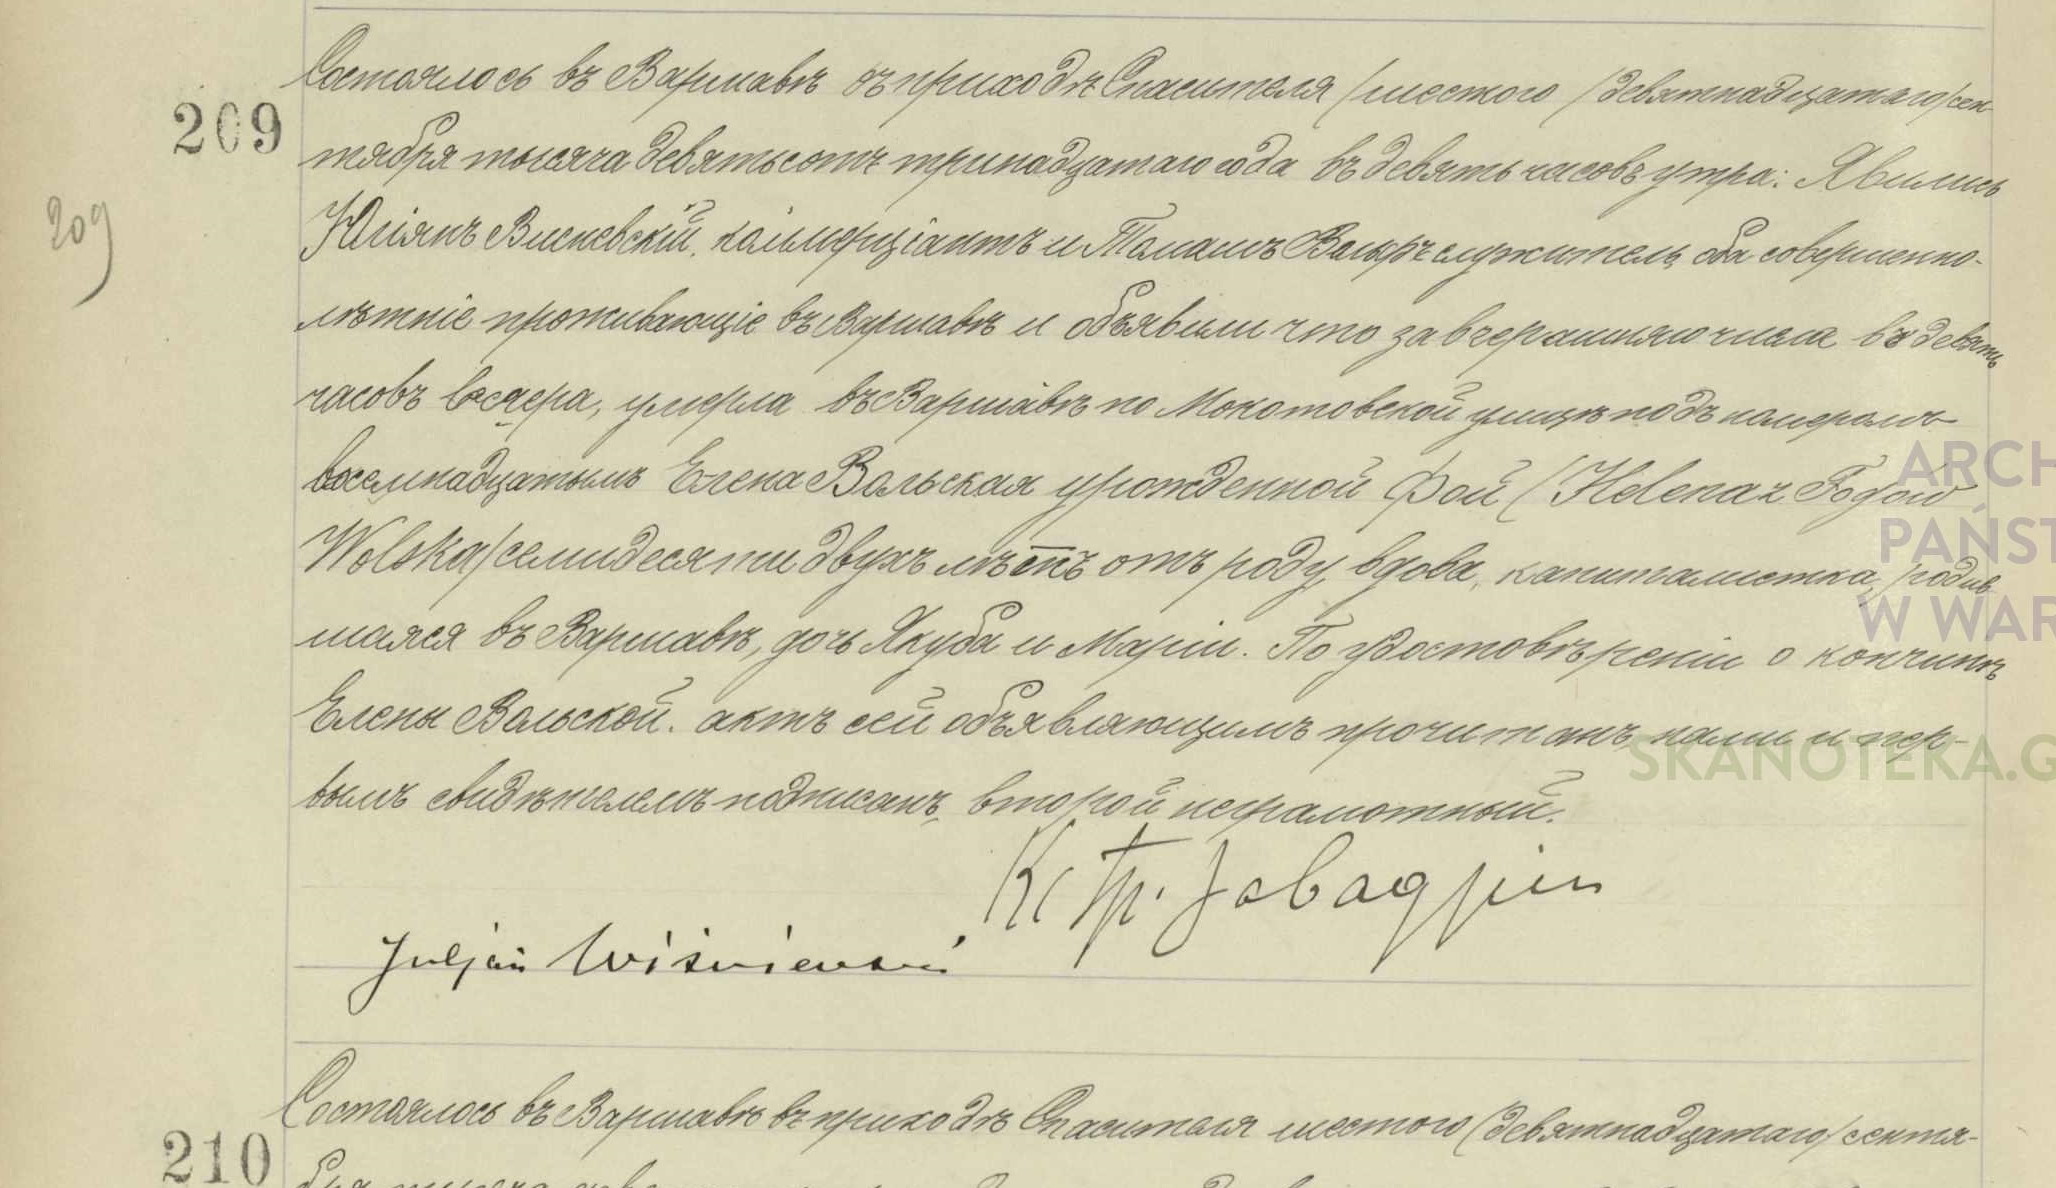 Состоялось въ Варшавѣ въ приходѣ Спасителя /шестого /девятнадцатаго/ сен-
209
тября тысяча девятьсотъ тринадцатаго года въ девять часовъ утра: Явились
209
Юліянъ Висневскій, и Томашъ Вольфъ служитель, оба совершенно-
лѣтніе проживающіе въ Варшавѣ и объявили что за вчерашняго числа въ девять
часовъ вечера, умерла въ Варшавѣ по Мокотовской улицѣ подъ номеромъ
восемнадцатымъ Елена Вольская урожденной Фой (Helena z
Wolska/ семидесяти двухъ лѣтъ отъ роду, вдова, капиталистка, родив-
шаяся въ Варшавѣ, дочь Якуба и Маріи. По удостовѣреніи о кончинѣ
Елены Вольской. актъ сей объявляющимъ прочитанъ, нами и пер-
вымъ свидѣтелемъ подписанъ, второй неграмотный.
Juljan Wiśniewski
Состоялось въ Варшавѣ въ приходѣ Спасителя шестого /девятнадцатаго/ сентя-
210
ARCH
PAŃST
W WAR
SKANOTEKA.G